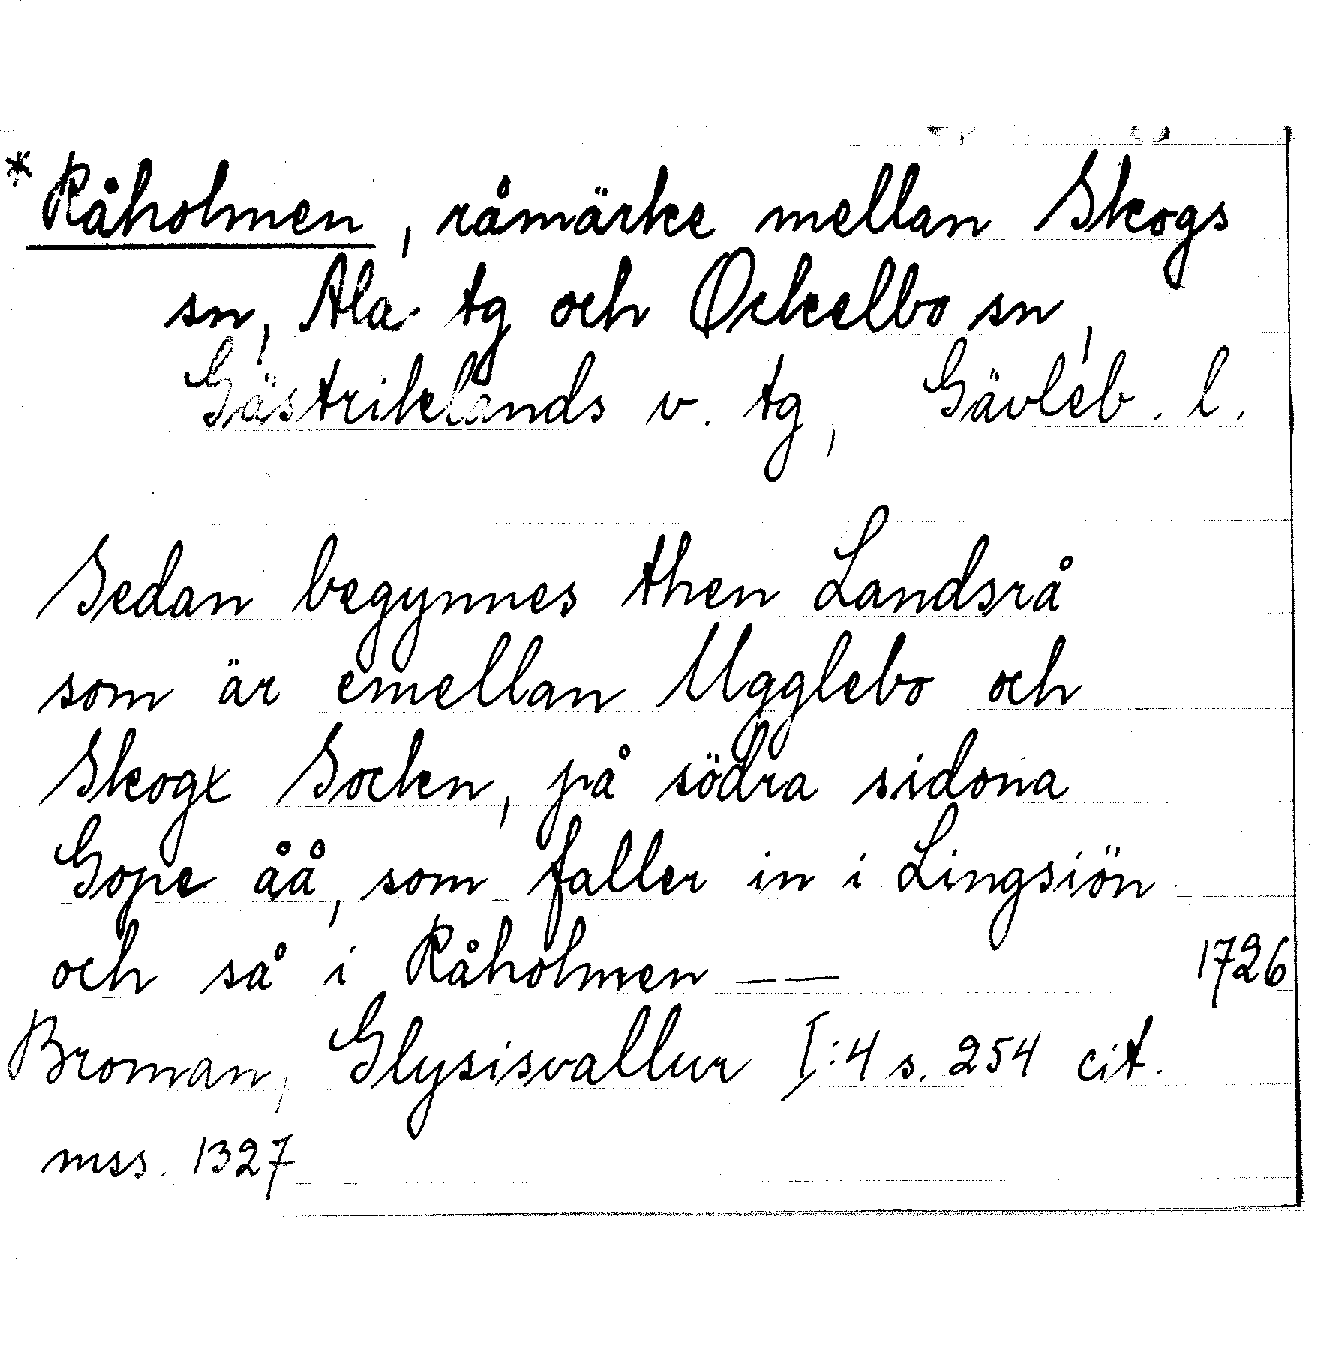 *Råholmen, råmärke mellan Skogs
sn, Ala tg och Ockelbo sn,
Gästriklands v. tg, Gävleb. l.
Sedan begynnes then Landsrå
som är emellan Ugglebo och
Skogx Sockn, på södra sidona
Gope åå, som faller in i Lingsiön
och så i Råholmen — — 1726
Broman, Glysisvallur I:4 s. 254 cit.
mss. 1327